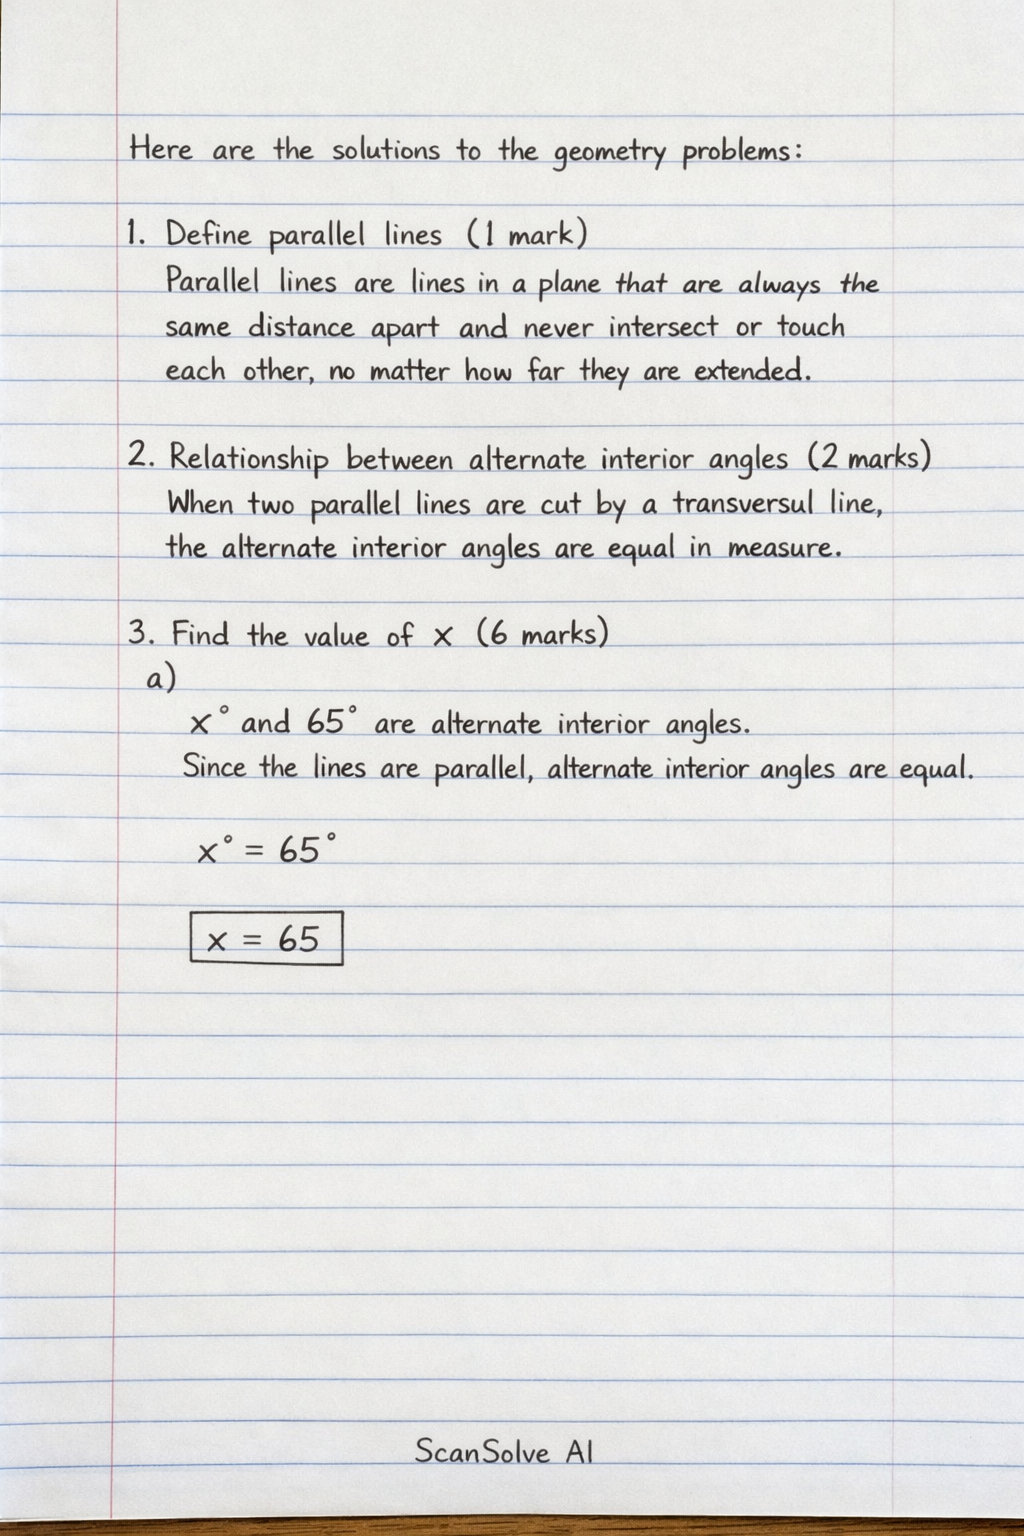 Here are the solutions to the geometry problems:
1. Define parallel lines (1 mark)
Parallel lines are lines in a plane that are always the
same distance apart and never intersect or touch
each other, no matter how far they are extended.
2. Relationship between alternate interior angles (2 marks)
When two parallel lines are cut by a transversul line,
the alternate interior angles are equal in measure.
3. Find the value of x (6 marks)
a)
x° and 65° are alternate interior angles.
Since the lines are parallel, alternate interior angles are equal.
x° = 65°
x = 65
ScanSolve AI